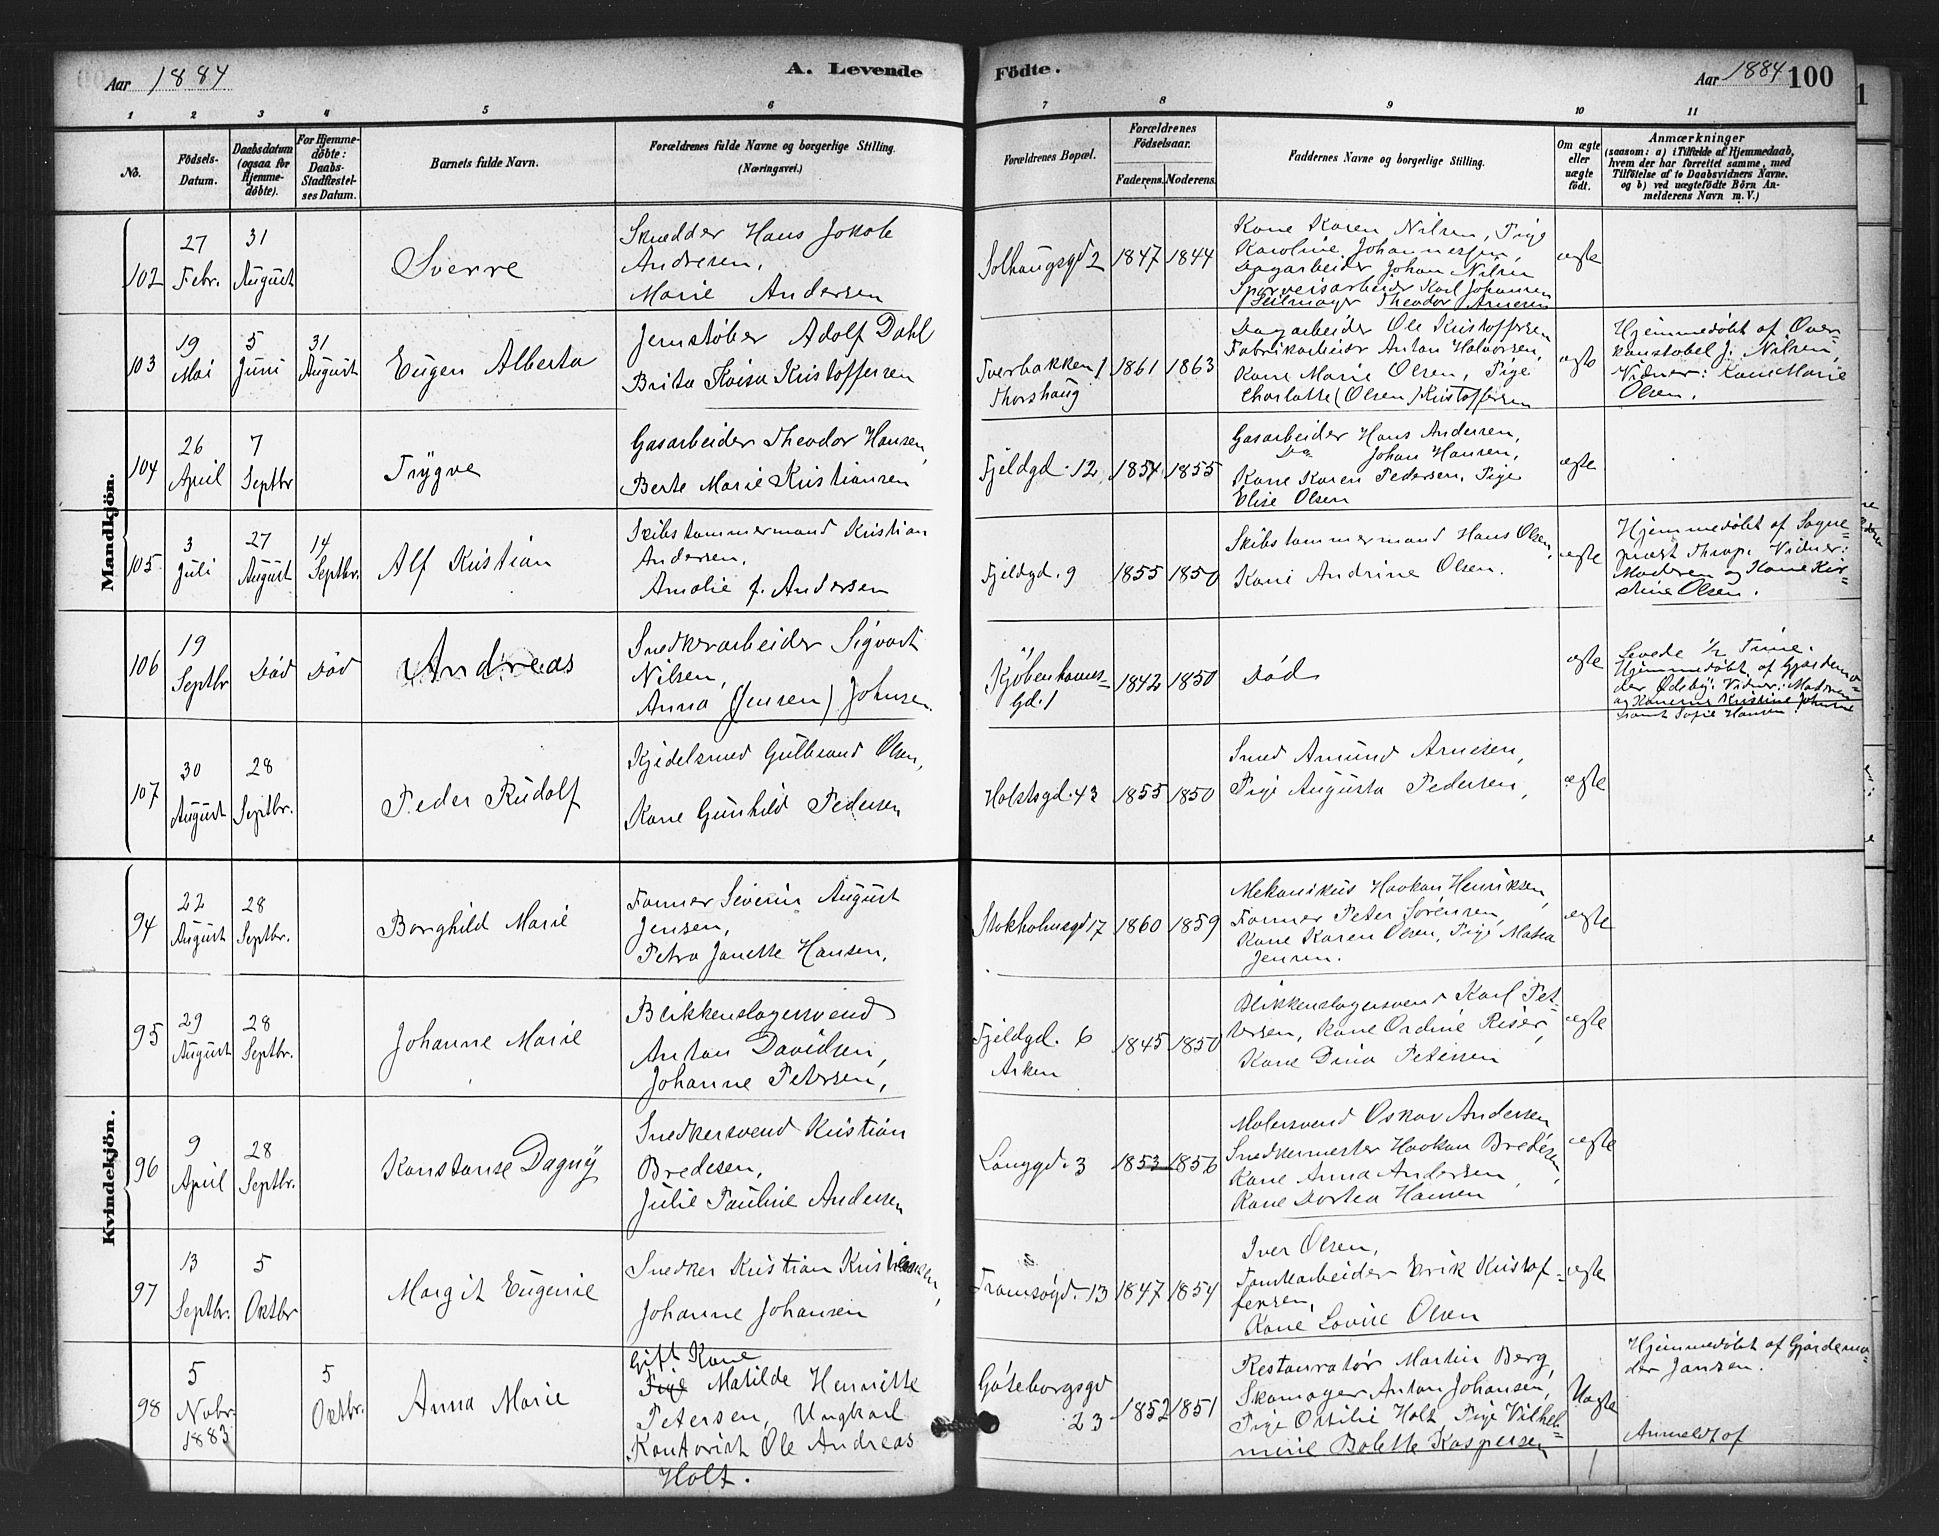 Aar 1884
A. Levende
Födte.
Aar 1884 100
1 2 3 4 5 6 7 8 9 10 11
No.
Födsels-
Datum.
Daabsdatum
(ogsaa for
Hjemme-
döbte).
For Hjemme-
döbte:
Daabs-
Stadfæstel-
ses Datum.
Barnets fulde Navn.
Forældrenes fulde Navne og borgerlige Stilling.
(Næringsvei.)
Forældrenes Bopæl.
Forældrenes
Födselsaar.
Faderens. Moderens.
Faddernes Navne og borgerlige Stilling.
Om ægte
eller
uægte
födt.
Anmærkninger
(saasom: a) i Tilfælde af Hjemmedaab,
hvem der har forrettet samme, med
Tilföielse af to Daabsvidners Navne.
og b) ved uægtefödte Börn An-
melderens Navn m. V.)
Mandkjön.
102
27
Febr.
31
August
Sverre
Skrædder Hans Jakob
Andresen,
Marie Andersen
Solhaugsgd 2
1847 1844
Kone Karen Nilsen, Pige
Karoline Johannessen,
Dagarbeider Johan Nilsen
Sporveisarbeider Karl Johansen
Theodor Arnesen
ægte
103
19
Mai
5
Juni
31
August
Eugen Alberto
Jernstøber Adolf Dahl
Brita Lovisa Kristoffersen
Tverbakken 1
Thorshaug
1861 1863
Dagarbeider Ole Kristoffersen
Fabrikarbeider Anton Halvorsen,
Kone Marie Olsen, Pige
Charlotte (Olsen) Kristoffersen
ægte
Hjemmedøbt af Over-
konstabel J. Nilsen,
Vidner: Kone Marie
Olsen.
104
26
April
7
Septbr
Trygve
Gasarbeider Theodor Hansen,
Berte Marie Kristiansen
Fjeldgd. 12
1854 1855
Gasarbeider Hans Andersen,
Do Johan Hansen,
Kone Karen Pedersen, Pige
Elise Olsen
ægte
105
3
Juli
27
August
14
Septbr.
Alf Kristian
Skibstømmermand Kristian
Andersen,
Amalie J. Andersen
Fjeldgd. 9
1855 1850
Skibstømmermand Hans Olsen,
Kone Andrine Olsen.
ægte
Hjemmedøbt af Sogne-
præst Thrap. Vidner:
Moderen og Kone Kir-
stine Olsen.
106
19
Septbr
Død Død
Andreas
Snedkerarbeider Sigvart
Nilsen,
Anna (Jensen) Johnsen.
Kjøbenhavns-
Gd. 1
1842 1850
Død
ægte
Levede ½ Time.
Hjemmedøbt af Gjordemo-
der Ødeby. Vidner: Moderen
og Konerne Kristine Johnsen
samt Sofie Hansen.
107
30
August
28
Septbr.
Peder Rudolf
Kjedelsmed Gulbrand Olsen,
Kone Gunhild Pedersen
Holstsgd. 43
1855 1850
Smed Amund Arnesen,
Pige Augusta Pedersen,
ægte
Kvindekjön.
94
22
August
28
Septbr.
Borghild Marie
Former Severin August
Jensen,
Petra Janette Hansen,
Stokholmsgd 17
1860 1859
Mekanikus Haakon Henriksen,
Former Peter Sørensen,
Kone Karen Olsen, Pige Matea
Jensen.
ægte
95
29
August
28
Septbr.
Johanne Marie
Blikkenslagersvend
Anton Davidsen,
Johanne Petersen,
Fjeldgd. 6
Aiken
1845 1850
Blikkenslagersvend Karl Pet-
ersen, Kone Ordine Riser,
Kone Dina Petersen
ægte
96
9
April
28
Septbr.
Konstanse Dagny
Snedkersvend Kristian
Bredesen,
Julie Pauline Andersen
Langgd. 3
1853 1856
Malersvend Oskar Andersen
Snedkermester Haakon Bredesen,
Kone Anna Andersen,
Kone Dortea Hansen
ægte
97
13
Septbr.
5
Oktbr
Margit Eugenie
Snedker Kristian Kristiansen,
Johanne Johansen
Tromsøgd. 13
1847 1854
Iver Olsen,
Tomtearbeider Erik Kristof-
fersen,
Kone Lovise Olsen
ægte
98
5
Novbr.
1883
5
Oktbr.
Anna Marie
Gift Kone
Pige Matilde Henriette
Petersen, Ungkarl
Kontorist Ole Andreas
Holt.
Göteborgsgd
23
1852 1851
Restauratør Martin Berg,
Skomager Anton Johansen,
Pige Otilie Holt, Pige Vilhel-
mine Bolette Kaspersen
Uægte
Hjemmedøbt af Gjordemo-
der Jansen.
Anmeldt af